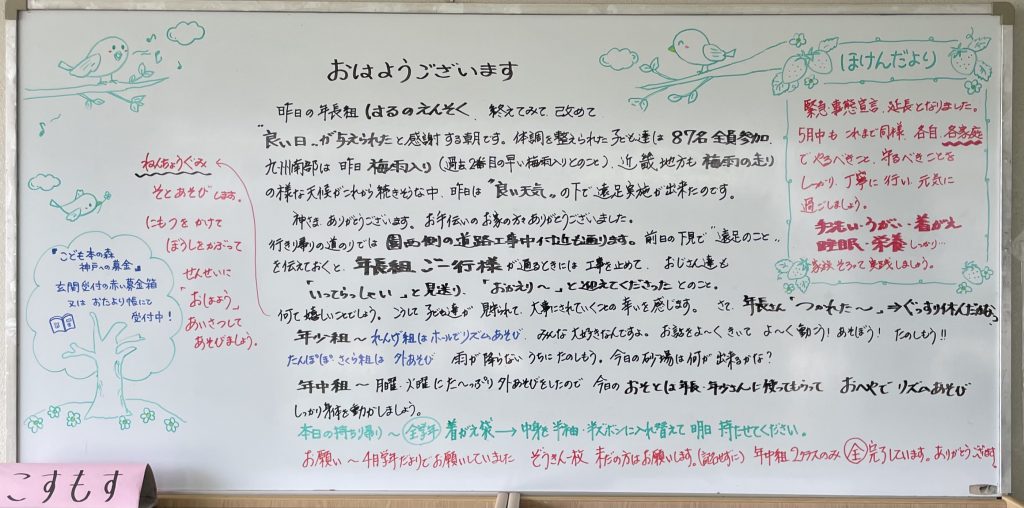 おはようございます
昨日の年長組 はるのえんそく、終えてみて 改めて
"良い日"が与えられたと感謝する朝です。体調を整えられた子ども達は 87名 全員参加
九州南部は 昨日 梅雨入り(過去2番目の早い梅雨入りとのこと)、近畿地方も 梅雨の走り
の様な天候がこれから続きそうな中、昨日は "良い天気"の下で遠足実施が出来たのです。
神さま ありがとうございます。お手伝いのお家の方々ありがとうございました。
行き帰りの道のりでは 園西側の道路工事中に近も通ります。前日の下見で"遠足のこと"
を伝えておくと、年長組 ご一行様 が通るときには 工事を止めて、おじさん達も
「いってらっしゃい」と見送り、「おかえり~」と迎えてくださったとのこと。
何て嬉しいことでしょう。こうして子ども達が 見守られて、大事にされていくことの 幸いを感じます。 さて 年長さん「つかれた~」→ぐっすり休んだかな?
年少組~ れんげ組は ホールでリズムあそび みんな大好きなんですよ。お話をよ~くきいて よ~く動こう!あそぼう! たのしもう!!
たんぽぽ さくら組は 外あそび 雨が降らない うちにたのしもう。今日の砂場は何が出来るかな?
年中組 ~ 月曜・火曜に た~っぷり 外あそびをしたので 今日の おそとは 年長・年少さんに使ってもらって おへやで リズムあそび
しっかり身体を動かしましょう。
本日の持ち帰り ~ 全学年 着がえ袋 → 中身を 半袖・半ズボンに入れ替えて 明日 持たせてください。
お願い ~ 4月学年だよりでお願いしていました ぞうきん一枚 まだの方はお願いします。(記名せずに) 年中組 2クラスのみ 全 完了しています。ありがとうございます
ねんちょうぐみ
そとあそびします。
にもつを かけて
ぼうしをかぶって
せんせいに
「おはよう」
あいさつして
あそびましょう。
"こども本の森
神戸への募金"
玄関受付の赤い募金箱
又は おたより帳にて
受付中!
ほけんだより
緊急事態宣言 延長となりました。
5月中も これまで同様、各自、各家庭
でやるべきこと、守るべきことを
しっかり、丁寧に行い、元気に
過ごしましょう。
手洗い・うがい・着がえ
睡眠・栄養 しっかり…
家族そろって 実践しましょう。
こすもす